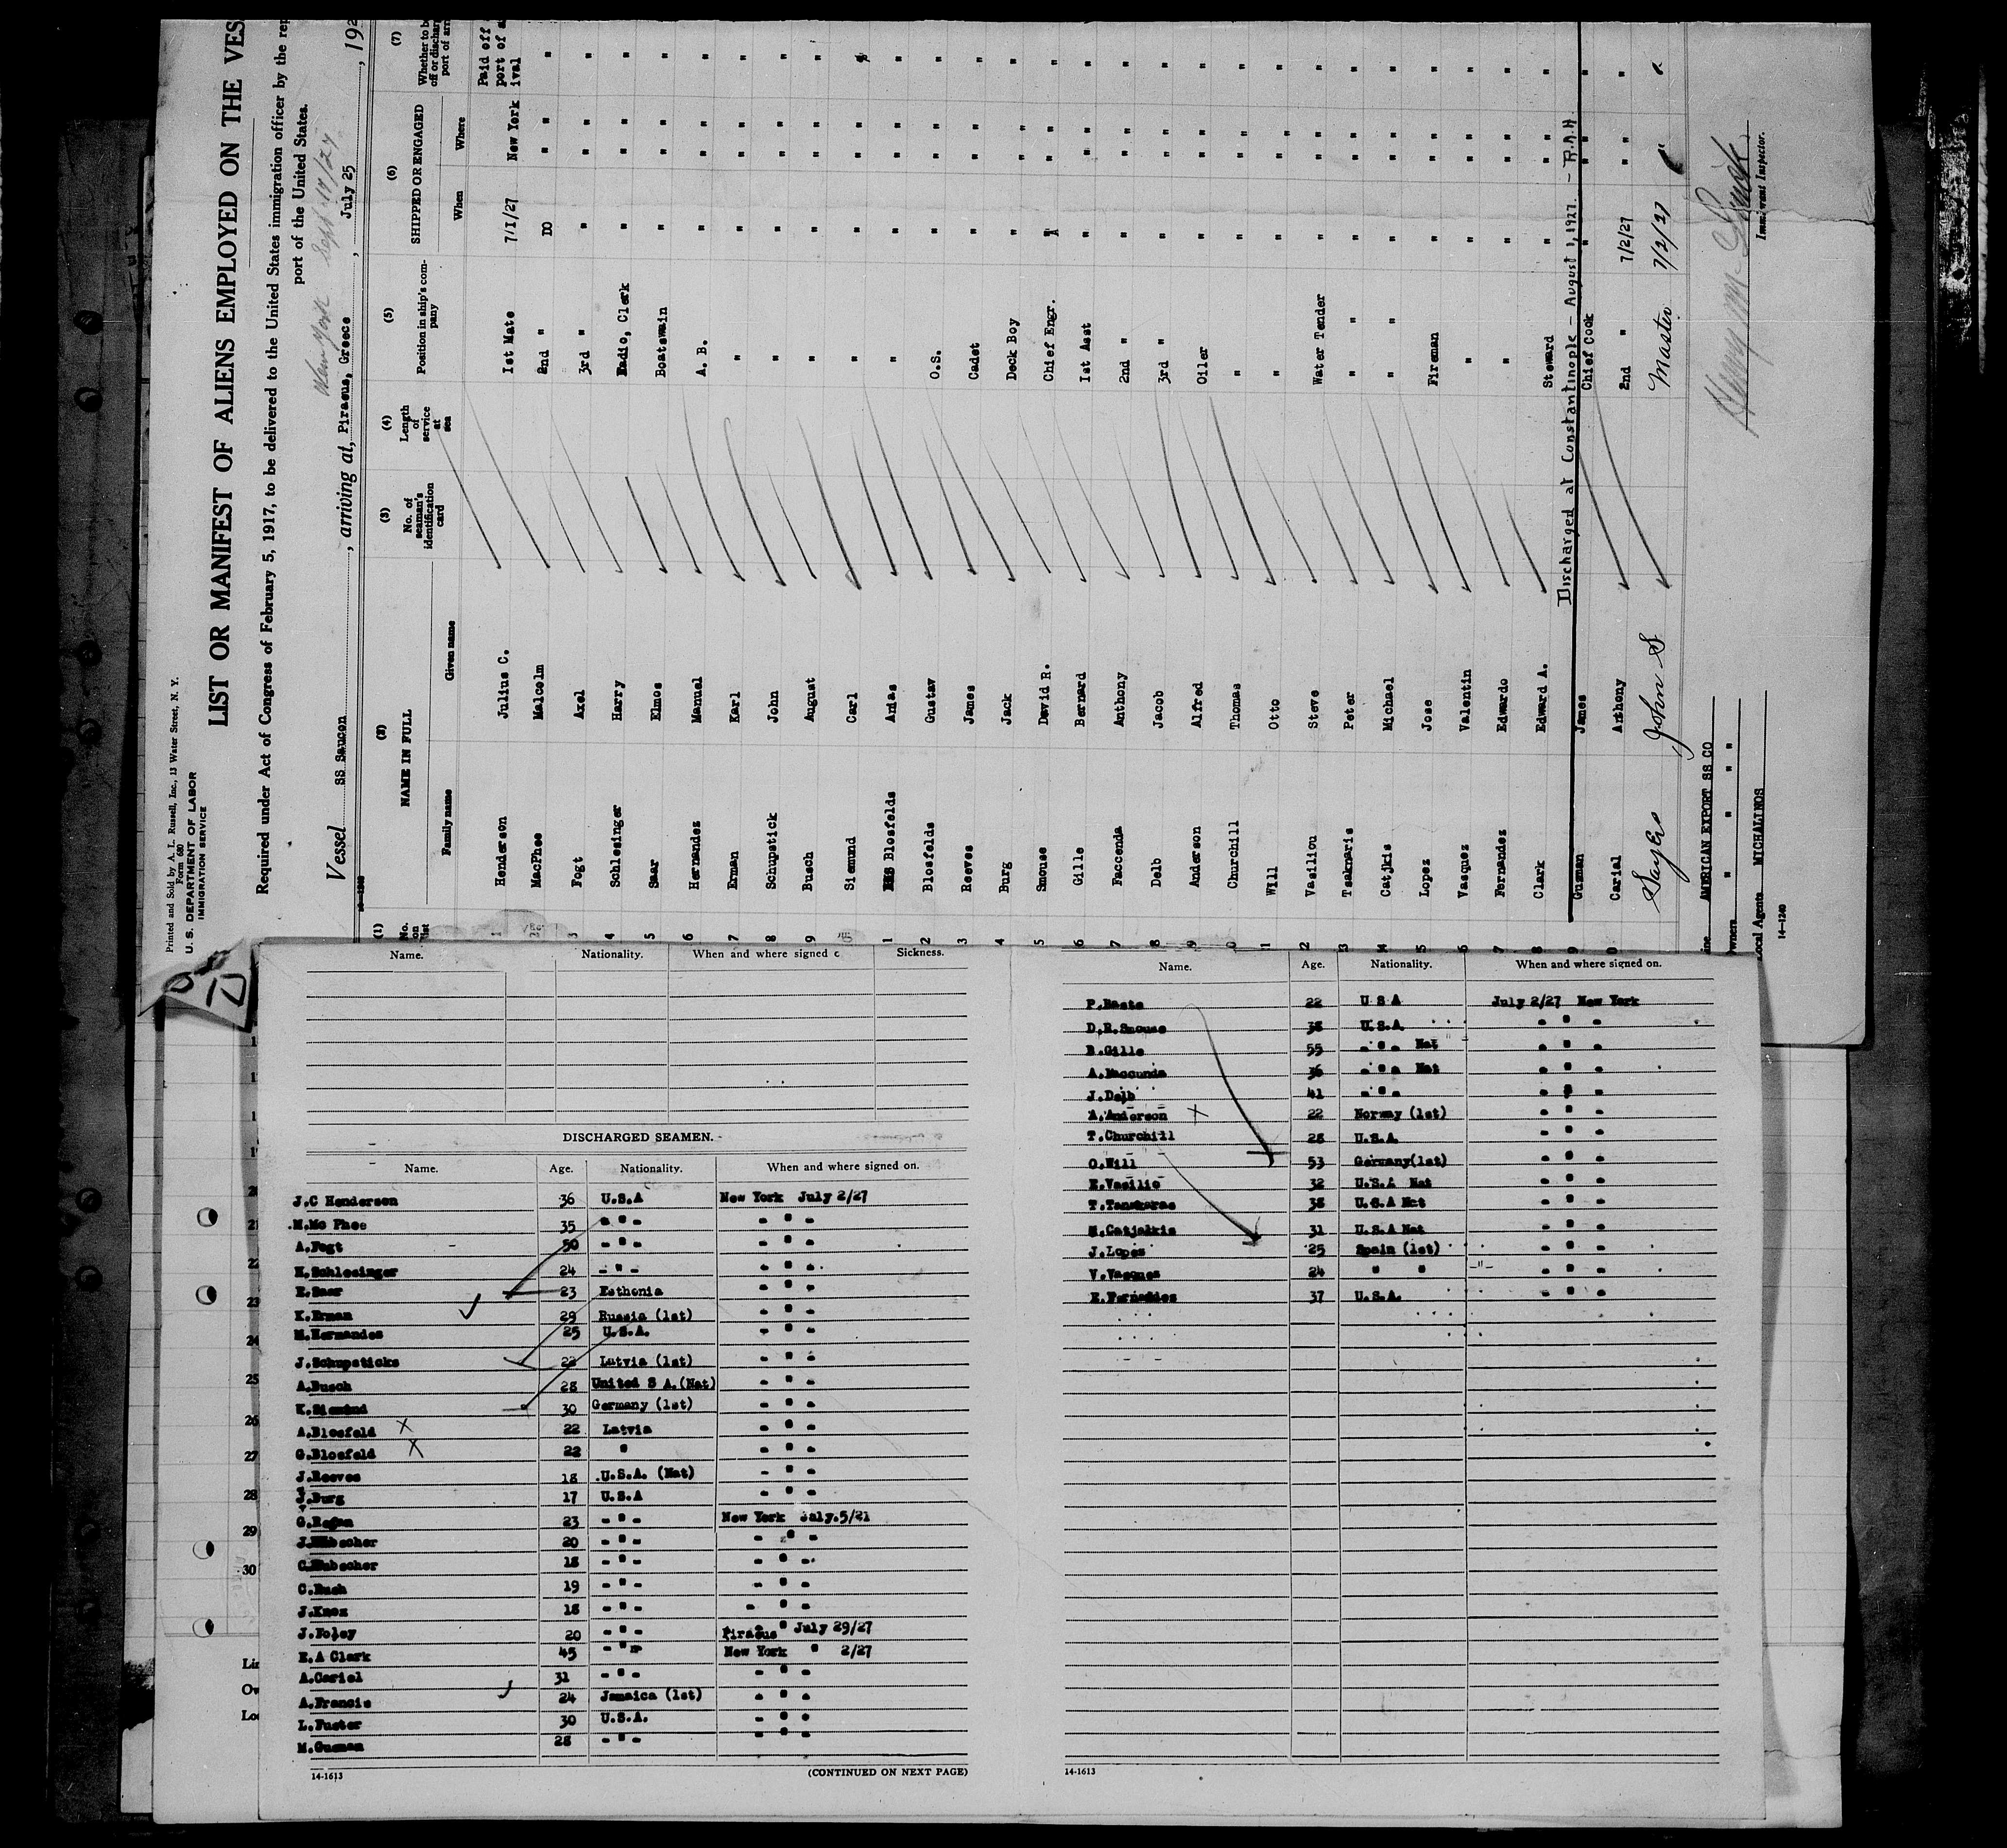 Printed and Sold by A. L. Russell, Inc., 13 Water Street, N. Y.
Form 680
U. S. DEPARTMENT OF LABOR
IMMIGRATION SERVICE
LIST OR MANIFEST OF ALIENS EMPLOYED ON THE VES
Required under Act of Congress of February 5, 1917, to be delivered to the United States immigration officer by the rep
port of the United States.
New York Sept. 17/27
Vessel SS Saucon, arriving at, Piraeus, Greece, July 25, 192
(1) (2) (3) (4) (5) (6) (7)
No. on list NAME IN FULL No. of seaman's identification card Length of service at sea Position in ship's company SHIPPED OR ENGAGED Whether to b off or dischar port of arr
Family name Given name When Where
1 Henderson Julius C. 1st Mate 7/1/27 New York Paid off port of a ival
MacPhee Malcolm 2nd " DO " " "
3 Fogt Axel 3rd " " " " "
4 Schlesinger Harry Radio, Clerk " " " "
5 Saar Elmos Boatswain " " " "
6 Hernandez Manuel A. B. " " " "
7 Erman Karl " " " " "
8 Schupstick John " " " " "
9 Busch August " " " " "
Siemund Carl " " " " "
1 Blosfelds Anias " " " " "
2 Blosfelds Gustaw O.S. " " " "
3 Reeves James Cadet " " " "
4 Burg Jack Deck Boy " " " "
5 Smouse David R. Chief Engr. " " "
6 Gille Bernard 1st Asst " " " "
7 Faccenda Anthony 2nd " " " " "
8 Delb Jacob 3rd " " " " "
9 Anderson Alfred Oiler " " " "
0 Churchill Thomas " " " " "
1 Will Otto " " " " "
2 Vasiliou Steve Water Tender " " " "
3 Tsaknaris Peter " " " " " "
4 Catjkis Michael " " " " " "
5 Lopez Jose Fireman " " " "
6 Vasquez Valentin " " " " "
7 Fernandez Edwardo " " " " "
8 Clark Edward A. Steward " " " "
Discharged at Constantinople - August 1, 1927. - R.A.H.
9 Gusman James Chief Cook " " " "
0 Carial Arthony 2nd " 7/2/27 " " "
Sayer John S Master 7/2/27 "
ine AMERICAN EXPORT SS CO
wners " " " "
ocal Agents MICHALINOS
14-1240
Immigrant Inspector.
Name. Nationality. When and where signed c Sickness.
DISCHARGED SEAMEN.
Name. Age. Nationality. When and where signed on.
J.C Henderson 36 U.S.A New York July 2/27
M.Mc Phee 35 - " - - " -
A.Fogt 50 - " - - " -
H.Schlesinger 24 - " - - " -
E.Saar 23 Esthonia - " -
K.Erman 29 Russia (1st) - " -
M.Hernandes 25 U.S.A. - " -
J.Schupsticks 22 Latvia (1st) - " -
A.Busch 28 United S A.(Nat) - " -
K.Siemund 30 Germany (1st) - " -
A.Blosfeld X 22 Latvia - " -
G.Blosfeld X 22 " - " -
J.Reeves 18 U.S.A. (Nat) - " -
J.Burg 17 U.S.A - " -
G.Regan 23 - " - New York July.5/21
20 - " - - " -
18 - " - - " -
C.Bush 19 - " - - " -
J.Knox 18 - " - - " -
J.Foley 20 - " - Piraeus " July 29/27
E.A Clark 45 - " - New York " 2/27
A.Cariel 31 - " - - " -
A.Francis 24 Jamaica (1st) - " -
L.Fuster 30 U.S.A. - " -
M.Gusman 28 - " - - " -
14-1613 (CONTINUED ON NEXT PAGE)
Name. Age. Nationality. When and where signed on.
P.Baste 22 U S A July 2/27 New York
D.R.Smouse 38 U.S.A. - " -
B.Gille 55 - " - Nat - " -
A.Faccunda 36 - " - Nat - " -
J.Delb 41 - " - - " -
A.Anderson X 22 Norway (1st) - " -
T.Churchill 28 U.S.A. - " -
O.Will 53 Germany(1st) - " -
E.Vasilio 32 U.S.A Nat - " -
38 U.S.A Nat - " -
M.Catjalkis 31 U.S.A Nat - " -
J.Lopes 25 Spain (1st) - " -
V.Vasques 24 " " -"- - " -
E.Fernandies 37 U.S.A. - " -
14-1613
20
21
22
23
24
25
26
27
28
29
30
Lin
Ow
Loc